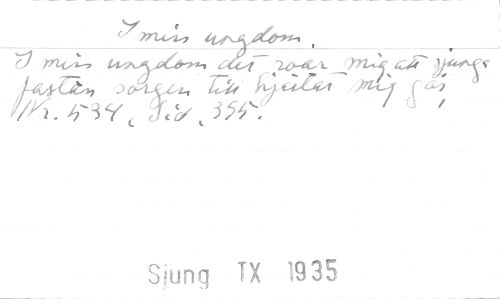 I min ungdom.
I min ungdom det roar mig att sjunga
fastän sorgen till hjertat mig går,
Nr. 534, Sid, 355.
Sjung TX 1935